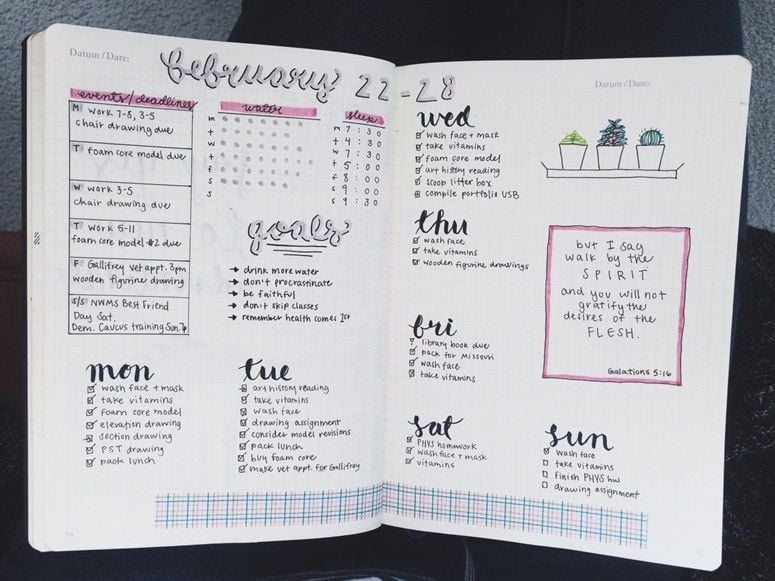 Datum / Date:
february 22-28
events/deadlines
M work 7-8, 3-5
chair drawing due
T foam core model due
W work 3-5
chair drawing due
T work 5-11
foam core model #2 due
F Gallifrey vet appt. 3pm
wooden figurine drawing
S/S NWMS Best Friend
Day Sat.
Dem. Caucus training Sun.
water
m
t
w
t
f
s
s
sleep
m 7:30
t 4:30
w 7:30
t 5:00
f 8:00
s 9:00
s 9:30
goals
→ drink more water
→ don't procrastinate
→ be faithful
→ don't skip classes
→ remember health comes 1st
mon
wash face + mask
take vitamins
foam core model
elevation drawing
section drawing
PST drawing
pack lunch
tue
art history reading
take vitamins
wash face
drawing assignment
consider model revisions
pack lunch
buy foam core
make vet appt. for Gallifrey
Datum / Date:
wed
wash face + mask
take vitamins
foam core model
art history reading
scoop litter box
compile portfolio USB
thu
wash face
take vitamins
wooden figurine drawings
fri
library book due
pack for Missouri
wash face
take vitamins
sat
PHYS homework
wash face + mask
vitamins
but I say
walk by the
SPIRIT
and you will not
gratify the
desires of the
FLESH.
Galations 5:16
sun
wash face
take vitamins
finish PHYS hw
drawing assignment